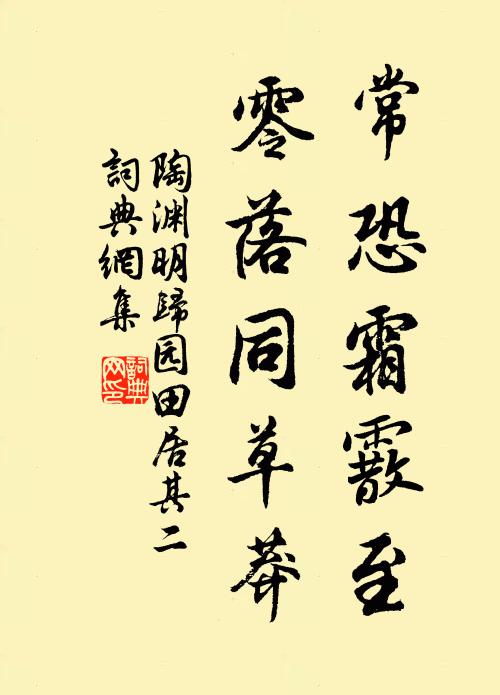 常恐霜霰至
零落同草莽
陶渊明歸园田居其二
詞典網集
詞典网印